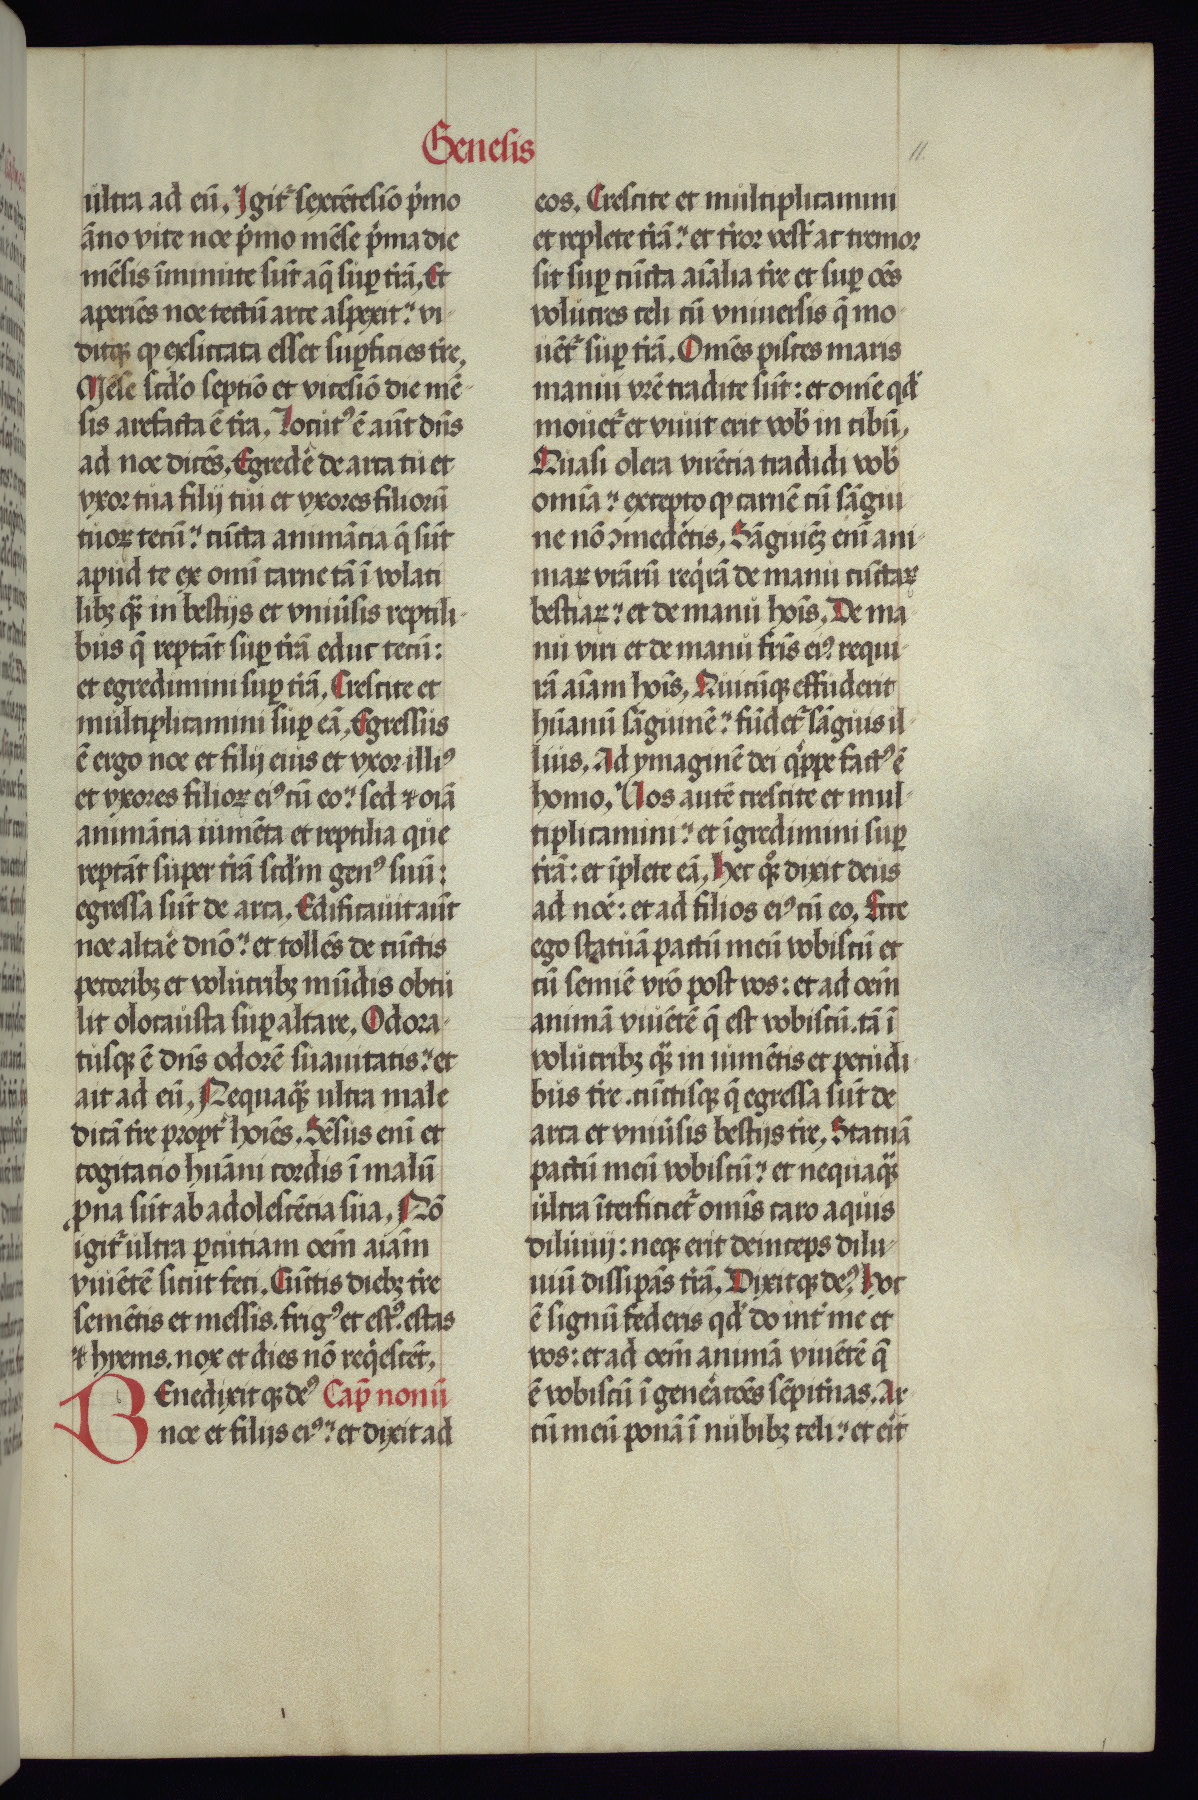 Genesis
11.
ultra ad eū. Igit᷑ sexcētesīo p̓mo
āno vite noe p̓mo mēse p̓ma die
mēsis īminute sūt aq̄ suꝑ t̓rā. Et
aperiēs noe tectū arce aspexit: vi-
ditqꝫ ꝙ exsiccata esset suꝑficies t̓re.
Mēse scd̓o septīo et vicesīo die mē-
sis arefacta ē t̓ra. Locutꝰ ē aūt dn̄s
ad noe dicēs. Egred̓e de arca tu et
vxor tua filij tui et vxores filiorū
tuoꝝ tecū: cūcta animācia q̄ sūt
apud te ex omī carne tā ī volati
libꝫ qȝ̄ in bestijs et vniūsis reptili-
bus q̄ reptāt suꝑ t̓rā educ tecū:
et egredimini suꝑ t̓rā. Crescite et
multiplicamini suꝑ eā. Egressus
ē ergo noe et filij eius et vxor illiꝰ
et vxores filioꝝ eiꝰ cū eo: sed ⁊ oīa
animācia iumēta et reptilia que
reptāt super t̓rā scd̓m genꝰ suū:
egressa sūt de arca. Edificauit aūt
noe altar̓e dn̄o: et tollēs de cūctis
pecoribꝫ et volucribꝫ mūdis obtu
lit olocausta suꝑ altare. Odora-
tusqꝫ ē dn̄s odorē suauitatis: et
ait ad eū. Nequaqȝ̄ ultra male
dicā t̓re propt̓ hoīes. Sēsus enī et
cogitacio hūani cordis ī malū
ꝓna sūt ab adolescētia sua. Nō
igit᷑ ultra ꝑcutiam oēm aīam
viuētē sicut feci. Cūctis diebꝫ t̓re
semētis et messis. frigꝰ et estꝰ. estas
⁊ hyems. nox et dies nō req̓escēt.
Benedixitqꝫ deꝰ Cap̄ nonū
noe et filijs eiꝰ: et dixit ad
eos. Crescite et multiplicamini
et replete t̓rā: et t̓ror vest̓ ac tremor
sit suꝑ cūcta aīalia t̓re et suꝑ oēs
volucres celi cū vniuersis q̄ mo-
uēt᷑ suꝑ t̓rā. Omēs pisces maris
manui vr̄e tradite sūt: et omē qd̓
mouet᷑ et viuit erit vob̓ in cibū.
Quasi olera virētia tradidi vob̓
omīa: excepto ꝙ carnē cū sāgui
ne nō ꝯmedetis. Sāguīeꝫ enī ani-
maꝝ vr̄arū req̓rā de manu cūctaꝝ
bestiaꝝ: et de manu hoīs. De ma
nu viri et de manu fr̄is eiꝰ requi-
rā aīam hoīs. Quicūqꝫ effuderit
hūanū sāguinē: fūdet᷑ sāguis il-
lius. Ad ymaginē dei q̓ppe factꝰ ē
homo. Uos autē crescite et mul-
tiplicamini: et īgredimini suꝑ
t̓rā: et īplete eā. Hec qꝫ dixit deus
ad noe: et ad filios eiꝰ cū eo. Ecce
ego statuā pactū meū vobiscū et
cū semīe vr̄o post vos: et ad oēm
animā viuētē q̄ est vobiscū. tā ī
volucribꝫ qȝ̄ in iumētis et pecudi-
bus t̓re. cūctisqꝫ q̄ egressa sūt de
arca et vniūsis bestijs t̓re. Statuā
pactū meū vobiscū: et nequaqȝ̄
ultra īterficiet᷑ omīs caro aquis
diluuij: neqꝫ erit deinceps dilu-
uiū dissipās t̓rā. Dixitqꝫ deꝰ. Hoc
ē signū federis qd̓ do int̓ me et
vos: et ad oēm animā viuētē q̄
ē vobiscū ī gener̓acōes sēpit̓nas. Ar
cū meū ponā ī nubibꝫ celi: et er̓it